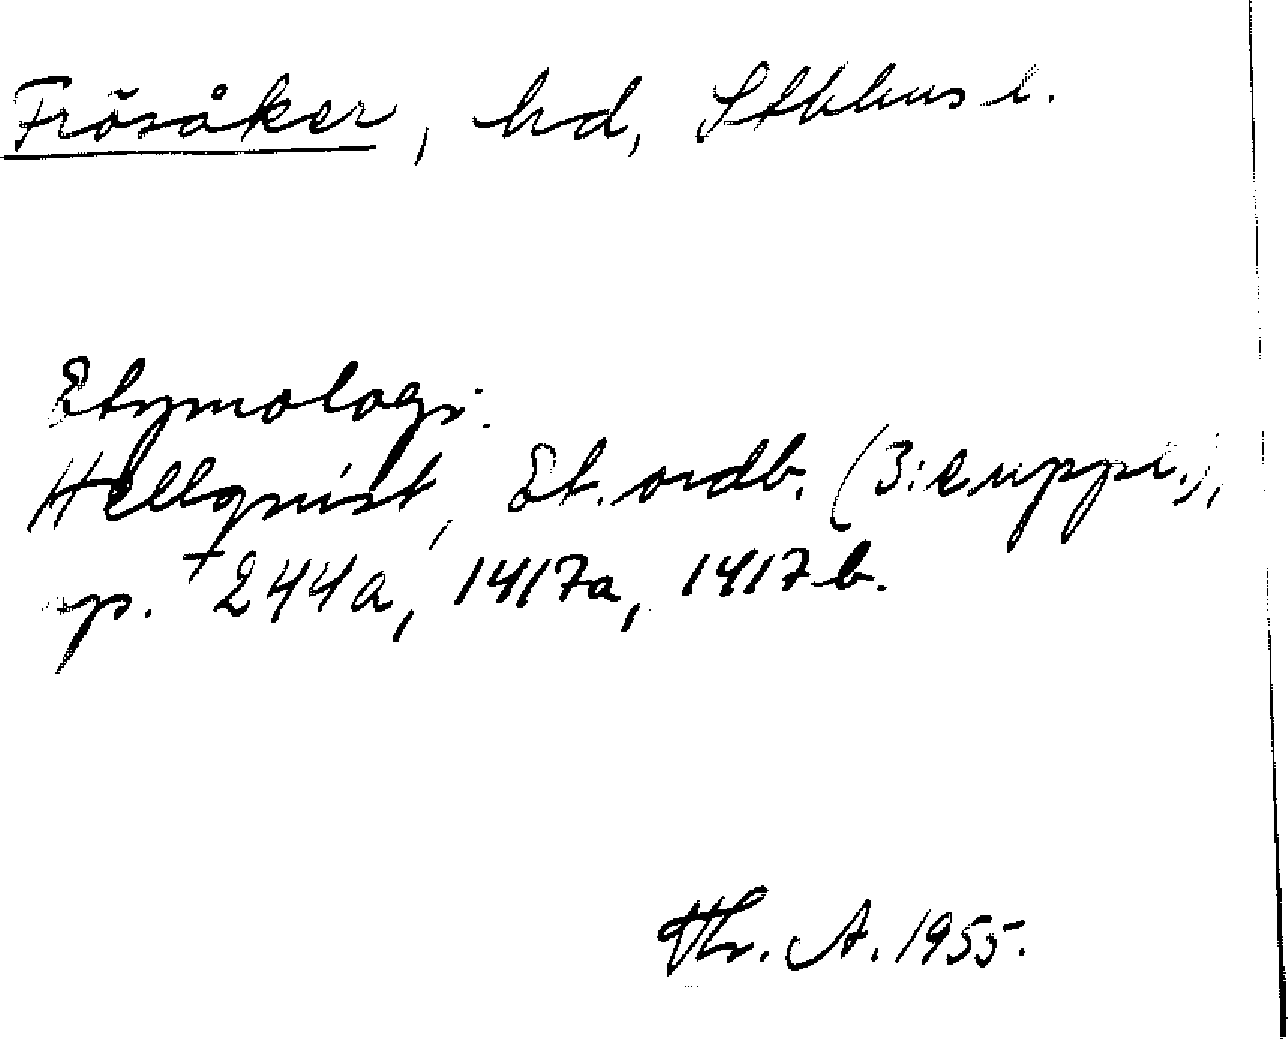 Frösåker, hd, Sthlms l.
Etymologi.
Hellqvist, Et. ordb. (3:e uppl.),
p. +244a, 1417a, 1417b.
Hr. A. 1955.